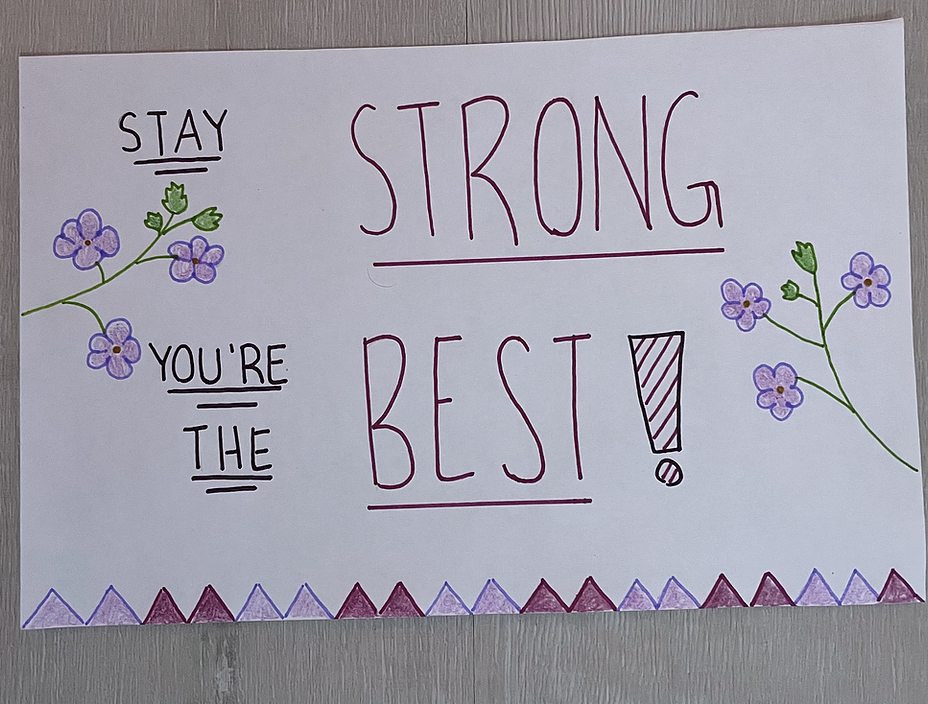 STAY STRONG
YOU'RE
THE BEST!